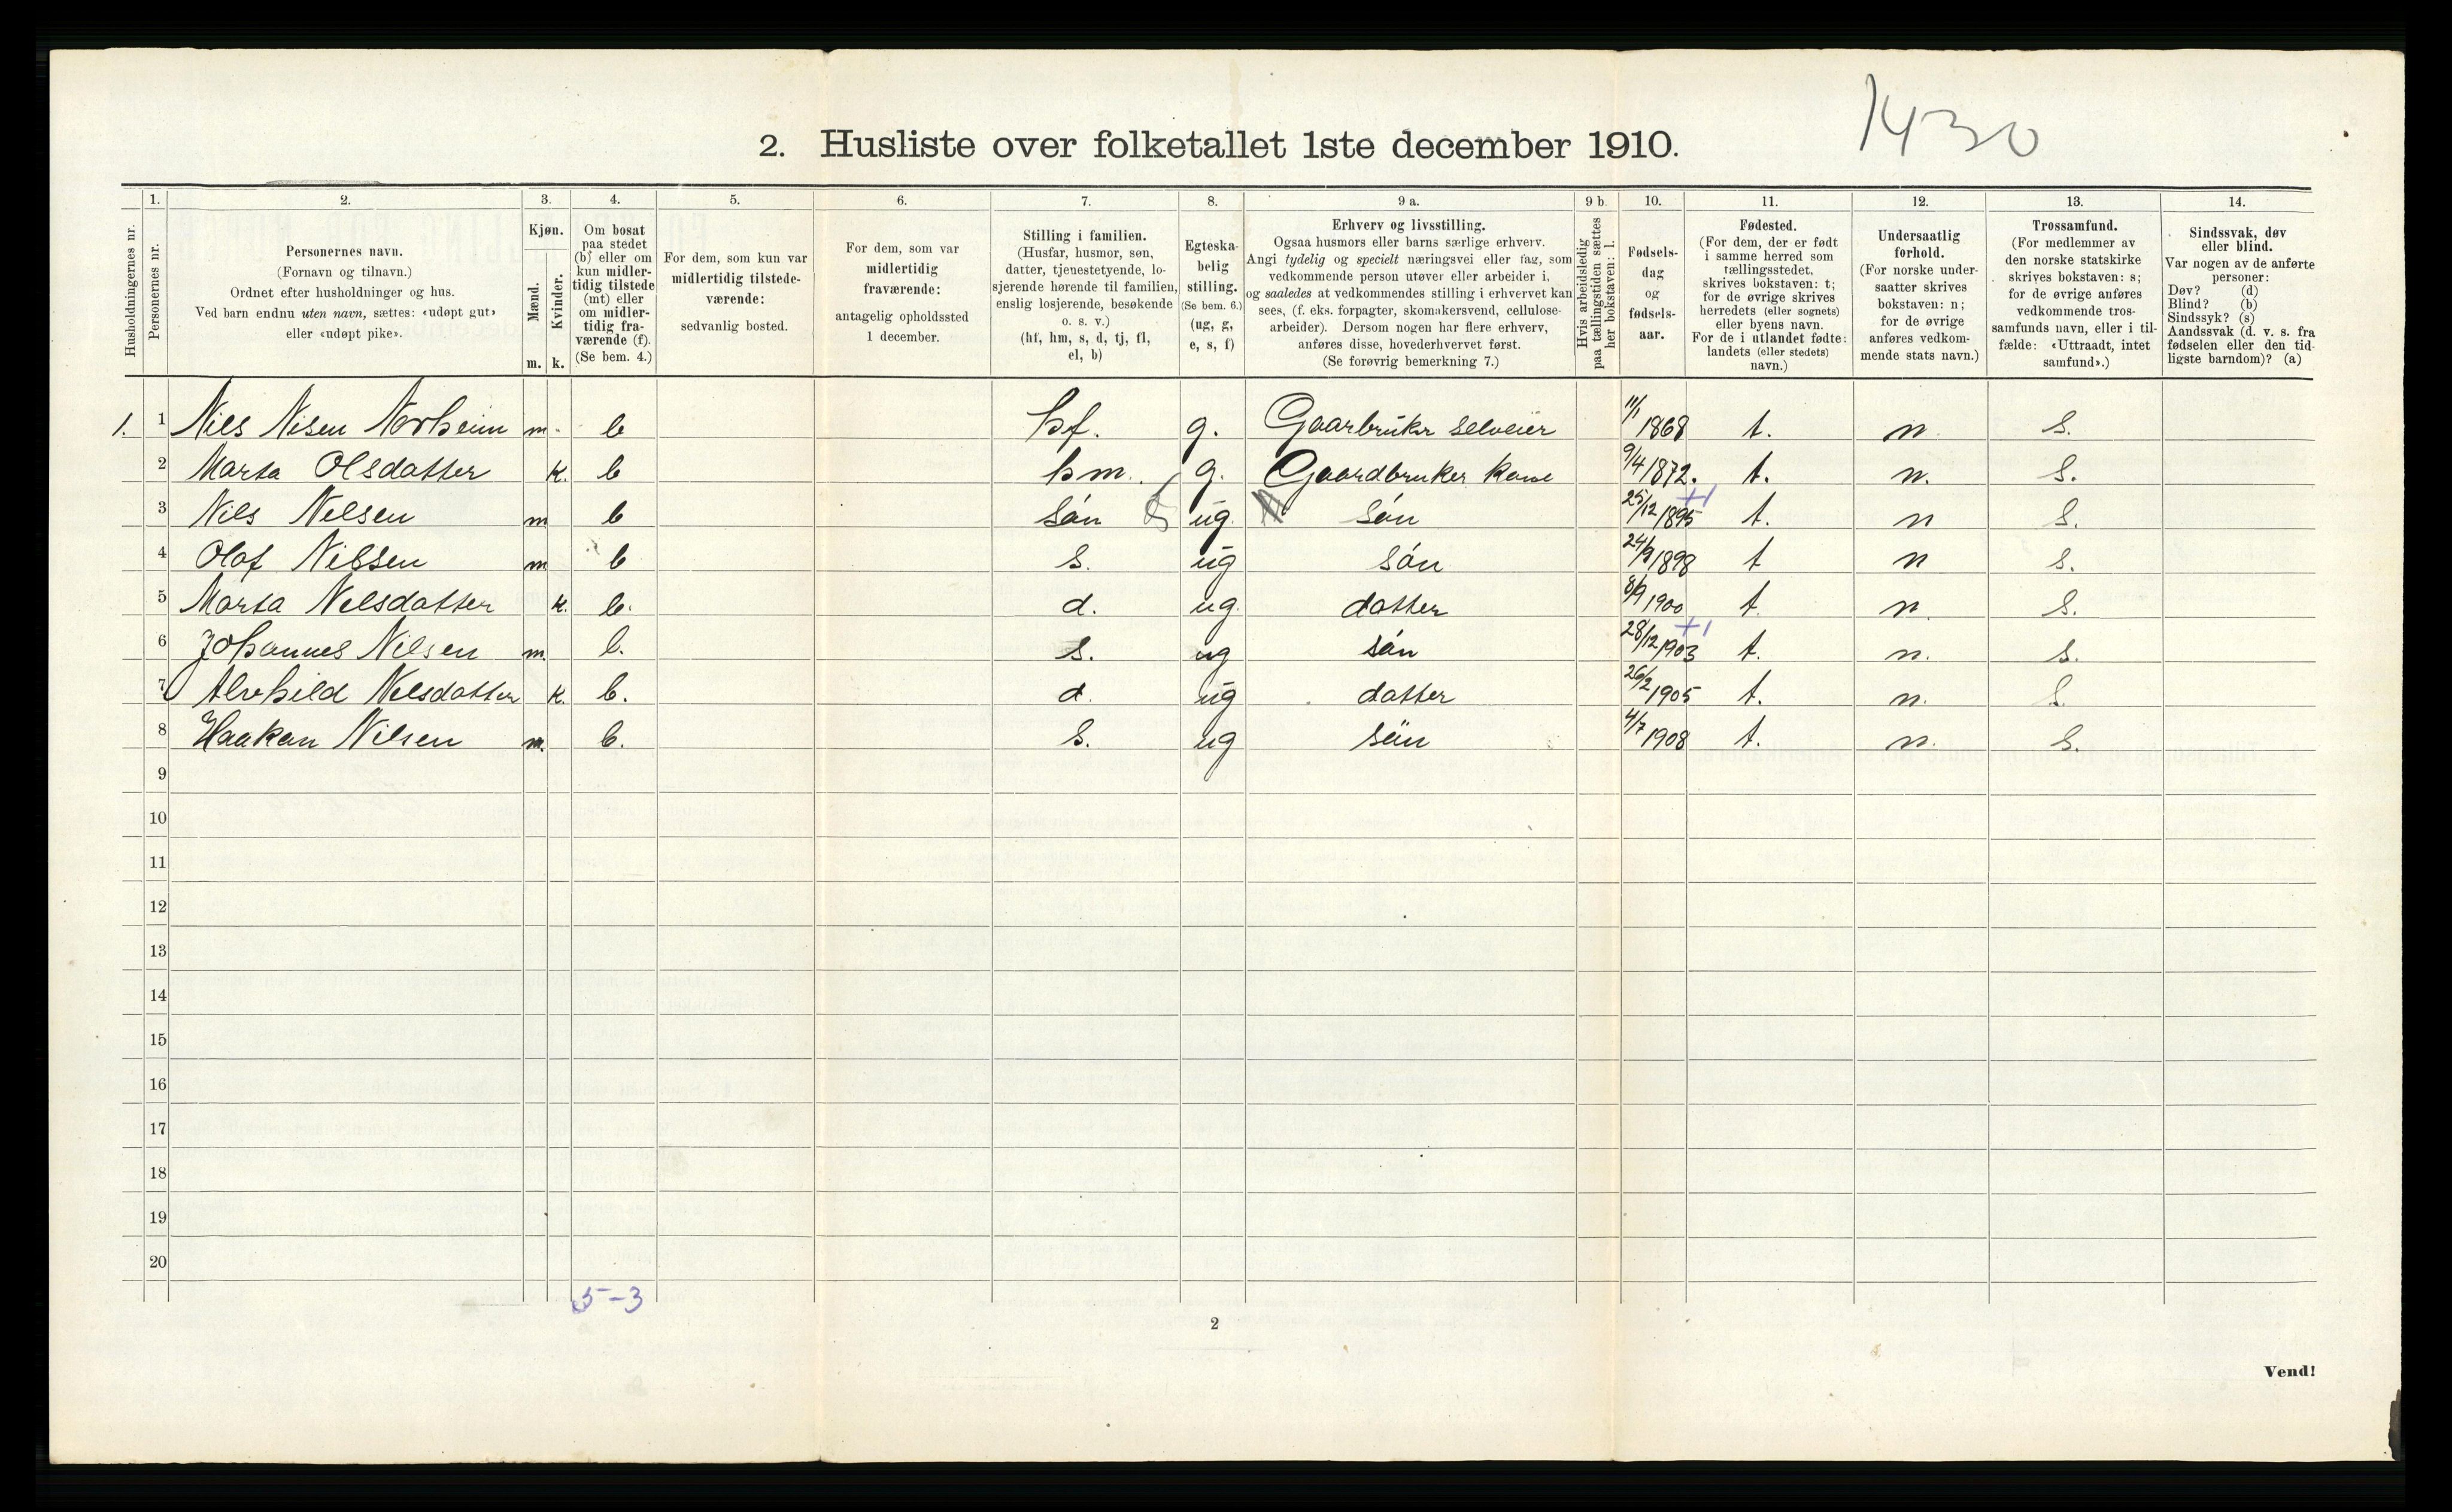 1430
2. Husliste over folketallet 1ste december 1910.
Husholdningernes nr.
1.
Personernes nr.
2.
Personernes navn.
(Fornavn og tilnavn.)
Ordnet efter husholdninger og hus.
Ved barn endnu uten navn, sættes: «udøpt gut»
eller «udøpt pike».
3.
Kjøn.
Mænd.
Kvinder.
m. k.
4.
Om bosat
paa stedet
(b) eller om
kun midler-
tidig tilstede
(mt) eller
om midler-
tidig fra-
værende (f).
(Se bem. 4.)
5.
For dem, som kun var
midlertidig tilstede-
værende:
sedvanlig bosted.
6.
For dem, som var
midlertidig
fraværende:
antagelig opholdssted
1 december.
7.
Stilling i familien.
(Husfar, husmor, søn,
datter, tjenestetyende, lo-
sjerende hørende til familien,
enslig losjerende, besøkende
o. s. v.)
(hf, hm, s, d, tj, fl,
el, b)
8.
Egteska-
belig
stilling.
(Se bem. 6.)
(ug, g,
e, s, f)
9 a.
Erhverv og livsstilling.
Ogsaa husmors eller barns særlige erhverv.
Angi tydelig og specielt næringsvei eller fag, som
vedkommende person utøver eller arbeider i,
og saaledes at vedkommendes stilling i erhvervet kan
sees, (f. eks. forpagter, skomakersvend, cellulose-
arbeider). Dersom nogen har flere erhverv,
anføres disse, hovederhvervet først.
(Se forøvrig bemerkning 7.)
9 b.
Hvis arbeidsledig
paa tællingstiden sættes
her bokstaven: l.
10.
Fødsels-
dag
og
fødsels-
aar.
11.
Fødested.
(For dem, der er født
i samme herred som
tællingsstedet,
skrives bokstaven: t;
for de øvrige skrives
herredets (eller sognets)
eller byens navn.
For de i utlandet fødte:
landets (eller stedets)
navn.)
12.
Undersaatlig
forhold.
(For norske under-
saatter skrives
bokstaven: n;
for de øvrige
anføres vedkom-
mende stats navn.)
13.
Trossamfund.
(For medlemmer av
den norske statskirke
skrives bokstaven: s;
for de øvrige anføres
vedkommende tros-
samfunds navn, eller i til-
fælde: «Uttraadt, intet
samfund».)
14.
Sindssvak, døv
eller blind.
Var nogen av de anførte
personer:
Døv? (d)
Blind? (b)
Sindssyk? (s)
Aandssvak (d. v. s. fra
fødselen eller den tid-
ligste barndom)? (a)
1. 1 Nils Nisen Norheim m. b hf. g. Gaarbruker selveier 11/1 1868 t. n. S.
2 Marta Olsdatter k. b hm. g. Gaardbruker kone 9/4 1872. t. n. S.
3 Nils Nilsen m b sön ug. sön 25/12 1895 +1 t. n S.
4 Olaf Nilssen m b s. ug sön 24/9 1898 t n s.
5 Marta Nilsdatter k. b. d. ug. datter 8/9 1900 t. n. S.
6 Johannes Nilsen m. b. s. ug sön 28/12 1903 +1 t. n. s.
7 Alvhild Nilsdatter k. b. d. ug datter 26/2 1905 t. n. S.
8 Haakan Nilsen m. b. s. ug sön 4/7 1908 t. n. S.
9
10
11
12
13
14
15
16
17
18
19
20
5-3
2
Vend!